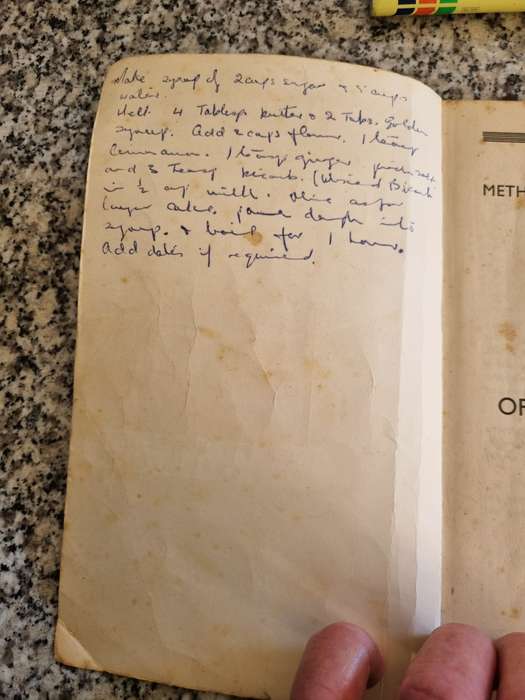 Make syrup of 2 cups sugar & 5 cups
water.
Melt 4 Tablesp butter & 2 Tabs. Golden
syrup. Add 2 cups flour. 1 teasp
Cinnamon. 1 teasp ginger. pinch salt
and 3 Teasp bicarb. (Mixed Bicarb
in ½ cup milk. Mix as for
layer cake. pour dough into
syrup. & boil for 1 hour.
Add dates if required.
METH
OF